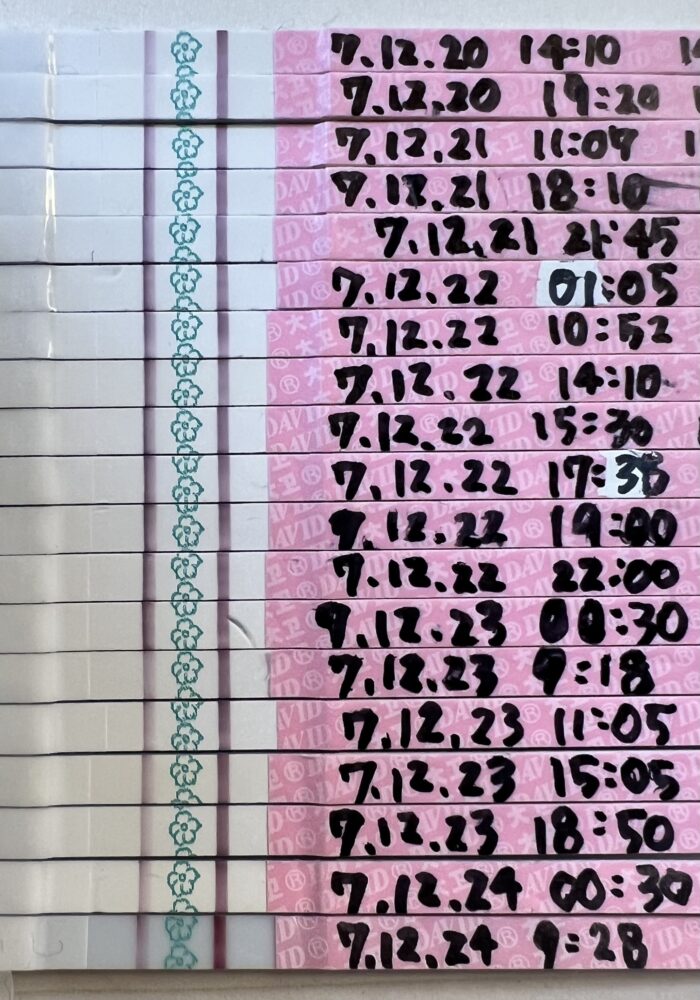 7.12.20 14:10
7.12.20 19:20
7.12.21 11:07
7.12.21 18:10
7.12.21 21:45
7.12.22 01:05
7.12.22 10:52
7.12.22 14:10
7.12.22 15:30
7.12.22 17:35
7.12.22 19:00
7.12.22 22:00
9.12.23 00:30
7.12.23 9:18
7.12.23 11:05
7.12.23 15:05
7.12.23 18:50
7.12.24 00:30
7.12.24 9:28